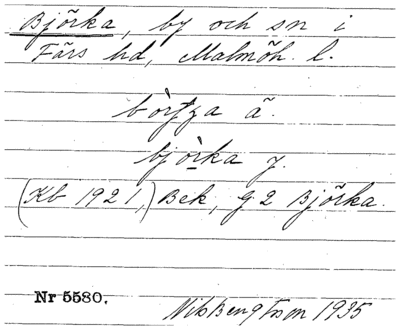 Björka, by och sn i
Färs hd, Malmöh. l.
ä.
bjòrka y.
(Kb 1921,) Bek, G2 Björka.
Nr 5580.
Nils Bengtsson 1935